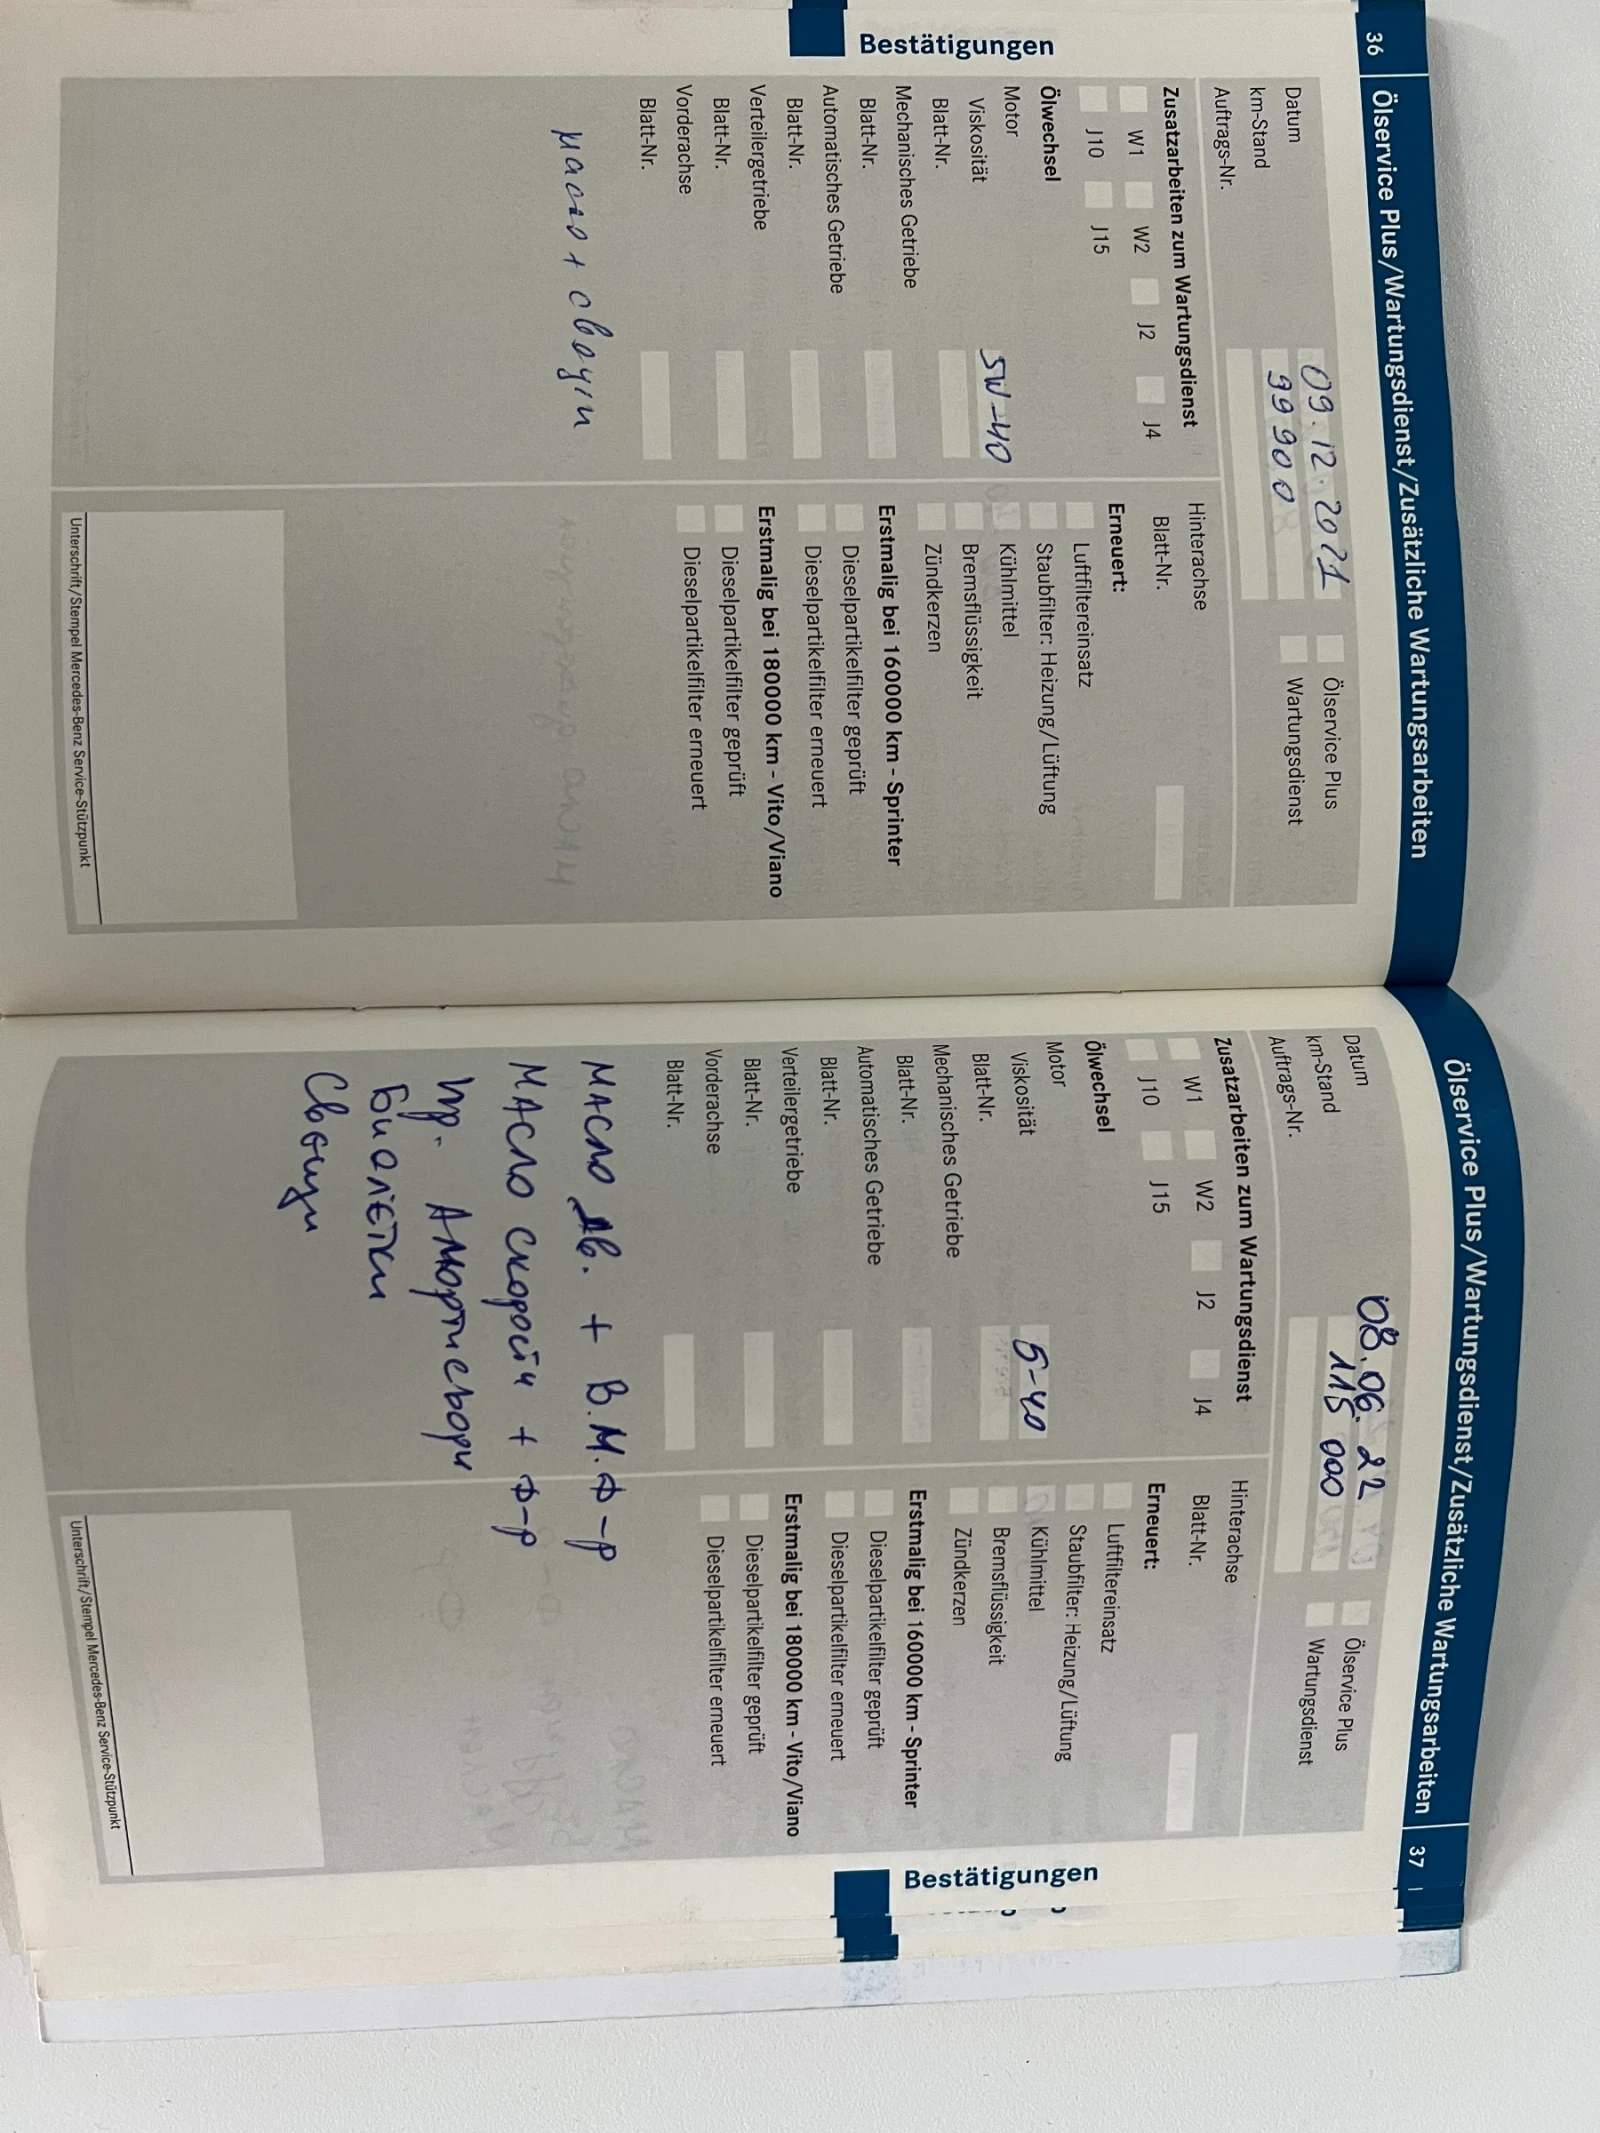 36 Ölservice Plus/Wartungsdienst/Zusätzliche Wartungsarbeiten
Bestätigungen
Datum 09.12.2021
km-Stand 99900
Auftrags-Nr.
Ölservice Plus
Wartungsdienst
Zusatzarbeiten zum Wartungsdienst
W1 W2 J2 J4
J10 J15
Ölwechsel
Motor
Viskosität 5W-40
Blatt-Nr.
Mechanisches Getriebe
Blatt-Nr.
Automatisches Getriebe
Blatt-Nr.
Verteilergetriebe
Blatt-Nr.
Vorderachse
Blatt-Nr.
масло + свещи
Hinterachse
Blatt-Nr.
Erneuert:
Luftfiltereinsatz
Staubfilter: Heizung/Lüftung
Kühlmittel
Bremsflüssigkeit
Zündkerzen
Erstmalig bei 160000 km - Sprinter
Dieselpartikelfilter geprüft
Dieselpartikelfilter erneuert
Erstmalig bei 180000 km - Vito/Viano
Dieselpartikelfilter geprüft
Dieselpartikelfilter erneuert
Unterschrift/Stempel Mercedes-Benz Service-Stützpunkt
Ölservice Plus/Wartungsdienst/Zusätzliche Wartungsarbeiten 37
Bestätigungen
Datum 08.06.22
km-Stand 115 000
Auftrags-Nr.
Ölservice Plus
Wartungsdienst
Zusatzarbeiten zum Wartungsdienst
W1 W2 J2 J4
J10 J15
Ölwechsel
Motor
Viskosität 5-40
Blatt-Nr.
Mechanisches Getriebe
Blatt-Nr.
Automatisches Getriebe
Blatt-Nr.
Verteilergetriebe
Blatt-Nr.
Vorderachse
Blatt-Nr.
Масло дв. + В.М.Ф-р
Масло скорости + Ф-р
пр. Амортисьори
Биолетки
Свещи
Hinterachse
Blatt-Nr.
Erneuert:
Luftfiltereinsatz
Staubfilter: Heizung/Lüftung
Kühlmittel
Bremsflüssigkeit
Zündkerzen
Erstmalig bei 160000 km - Sprinter
Dieselpartikelfilter geprüft
Dieselpartikelfilter erneuert
Erstmalig bei 180000 km - Vito/Viano
Dieselpartikelfilter geprüft
Dieselpartikelfilter erneuert
Unterschrift/Stempel Mercedes-Benz Service-Stützpunkt